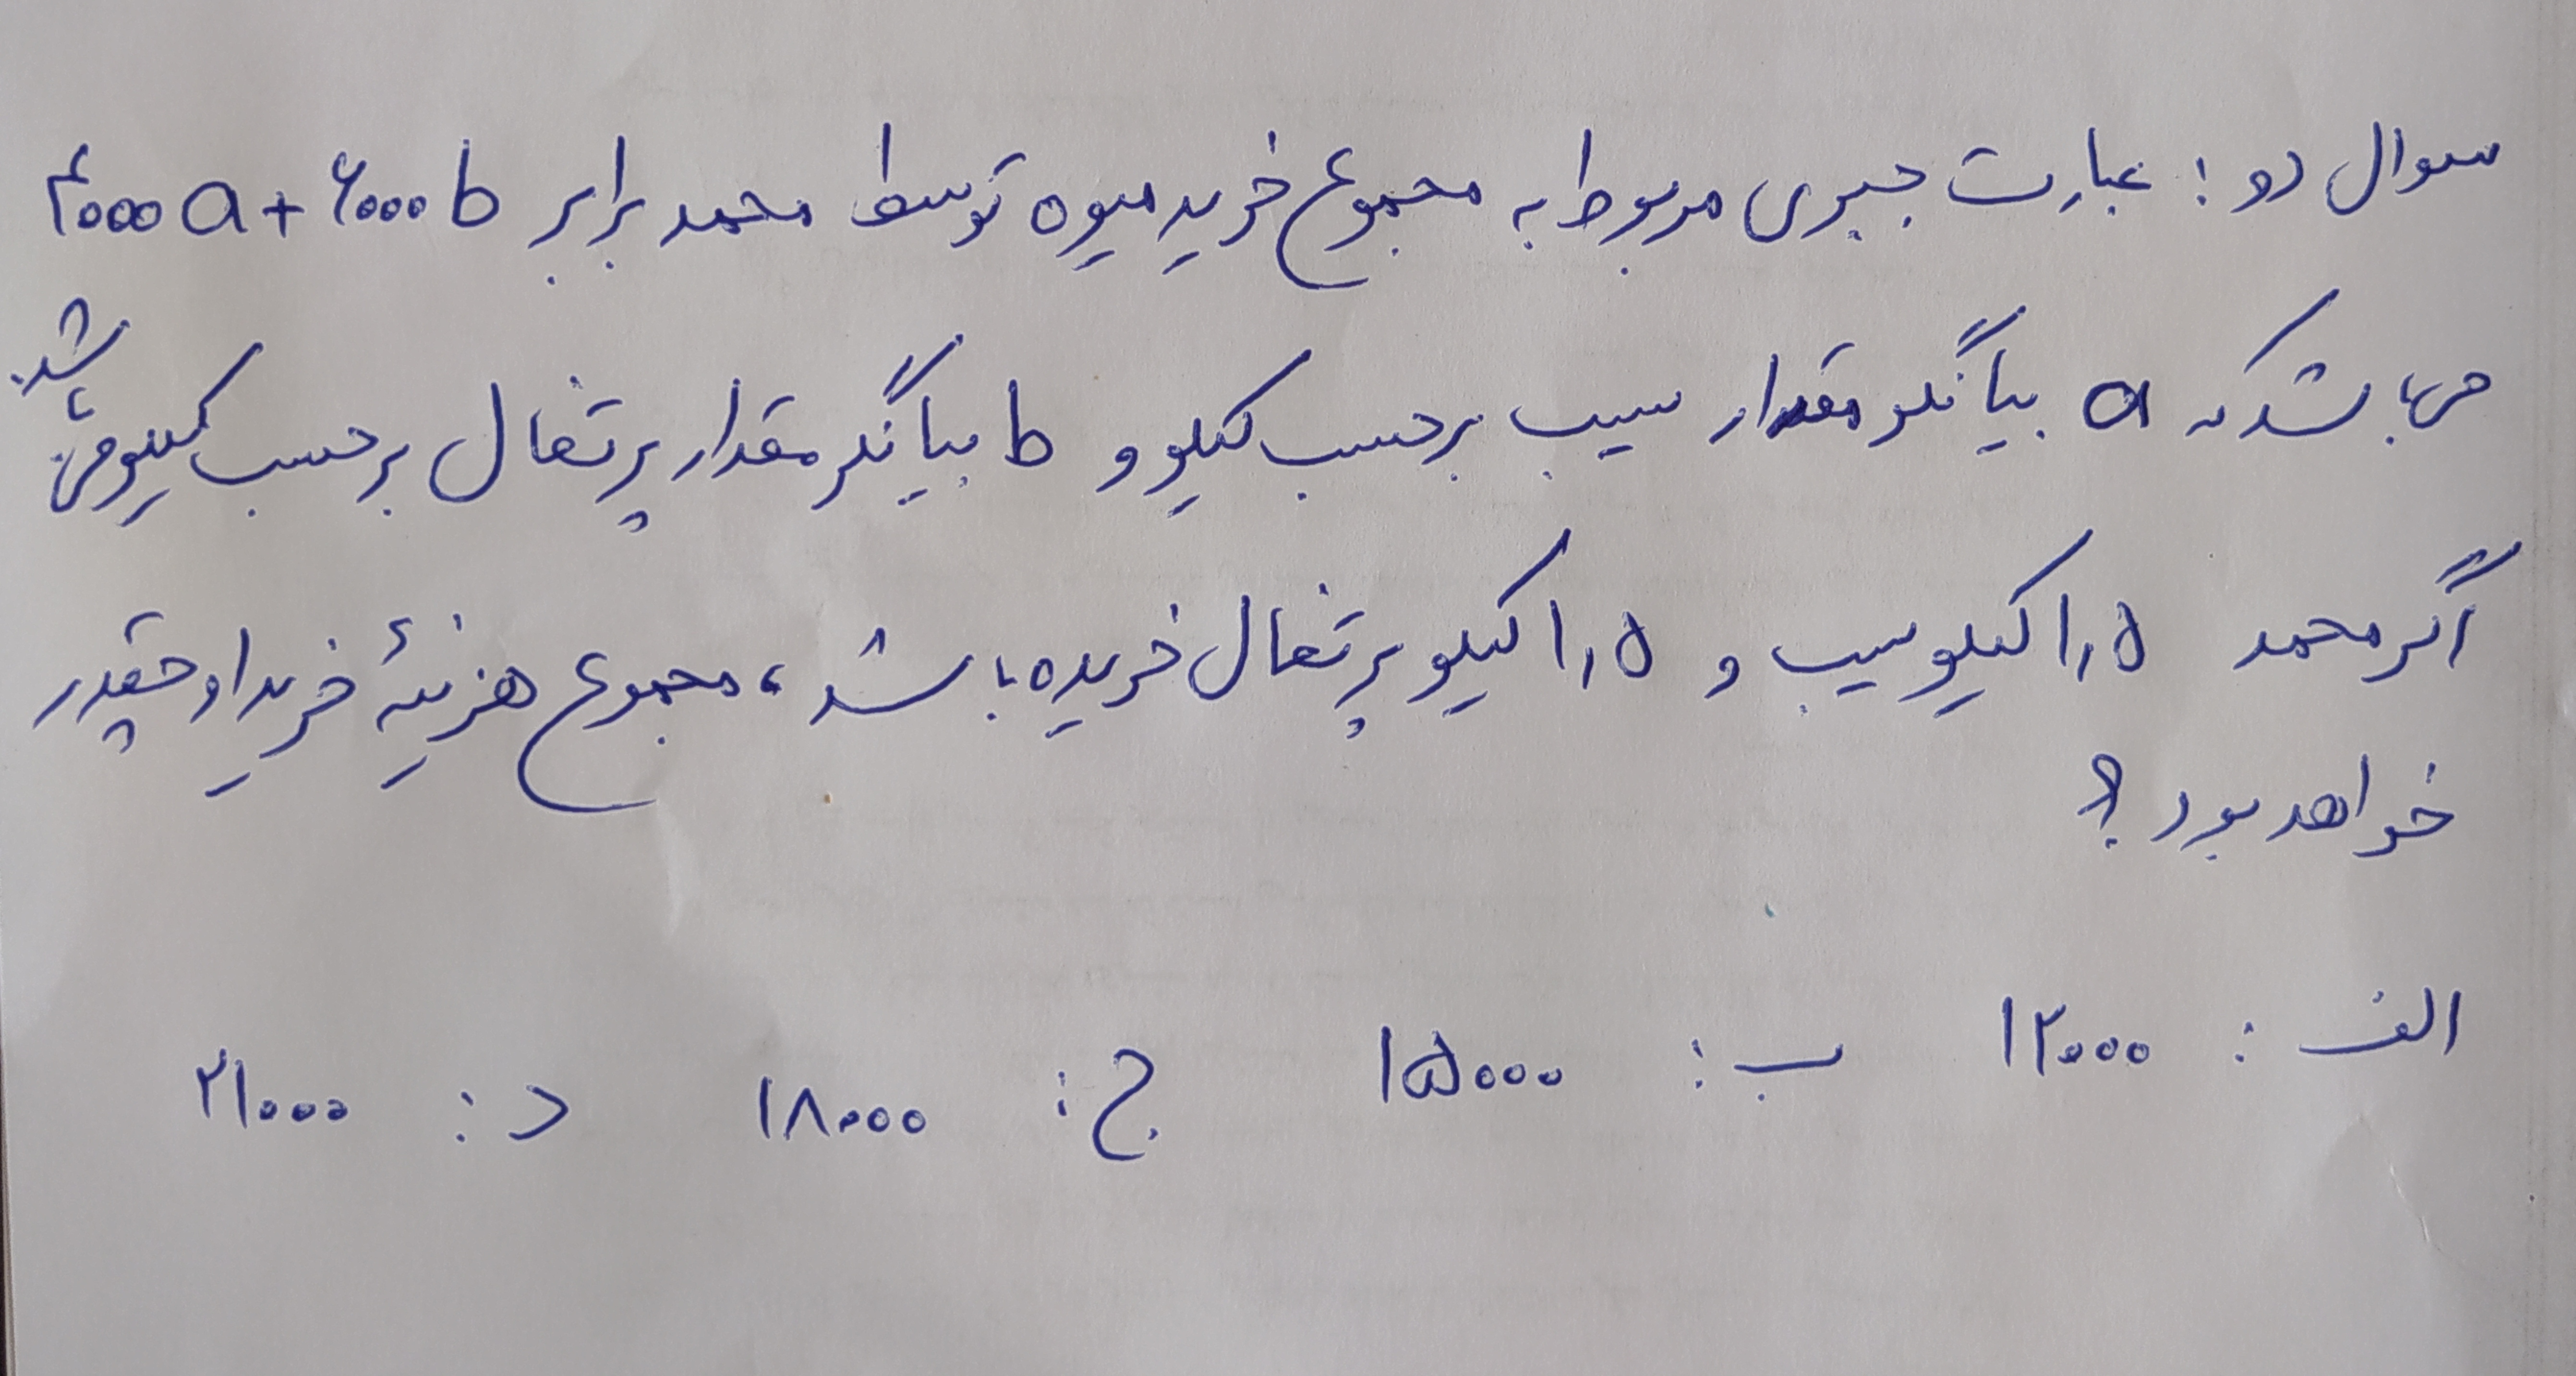 سوال دو: عبارت جبری مربوط به مجموع خرید میوه توسط محمد برابر ۴۰۰۰a + ۶۰۰۰b
می باشد که a بیانگر مقدار سیب برحسب کیلو و b بیانگر مقدار پرتغال برحسب کیلو می باشد.
اگر محمد ۱,۵ کیلو سیب و ۱,۵ کیلو پرتغال خریده باشد، مجموع هزینهٔ خرید او چقدر
خواهد بود؟
الف: ۱۲۰۰۰ ب: ۱۵۰۰۰ ج: ۱۸۰۰۰ د: ۲۱۰۰۰